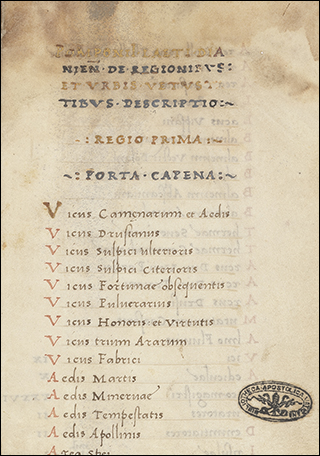 NIEÑ · DE · REGIONIBVS :
ET VRBIS VETVS
TIBVS · DESCRIPTIO :~
~ : REGIO PRIMA : ~
~ : PORTA · CAPENA : ~
Vicus Camęnarum et Aedis
Vicus Drusianus
Vicus Sulpici ulterioris
Vicus Sulpici Citerioris
Vicus Fortunae obsequentis
Vicus Pulverarius
Vicus Honoris et Virtutis
Vicus trium Ararum
Vicus Fabrici
Aedis Martis
Aedis Minervae
Aedis Tempestatis
Aedis Apollinis
Area Spei